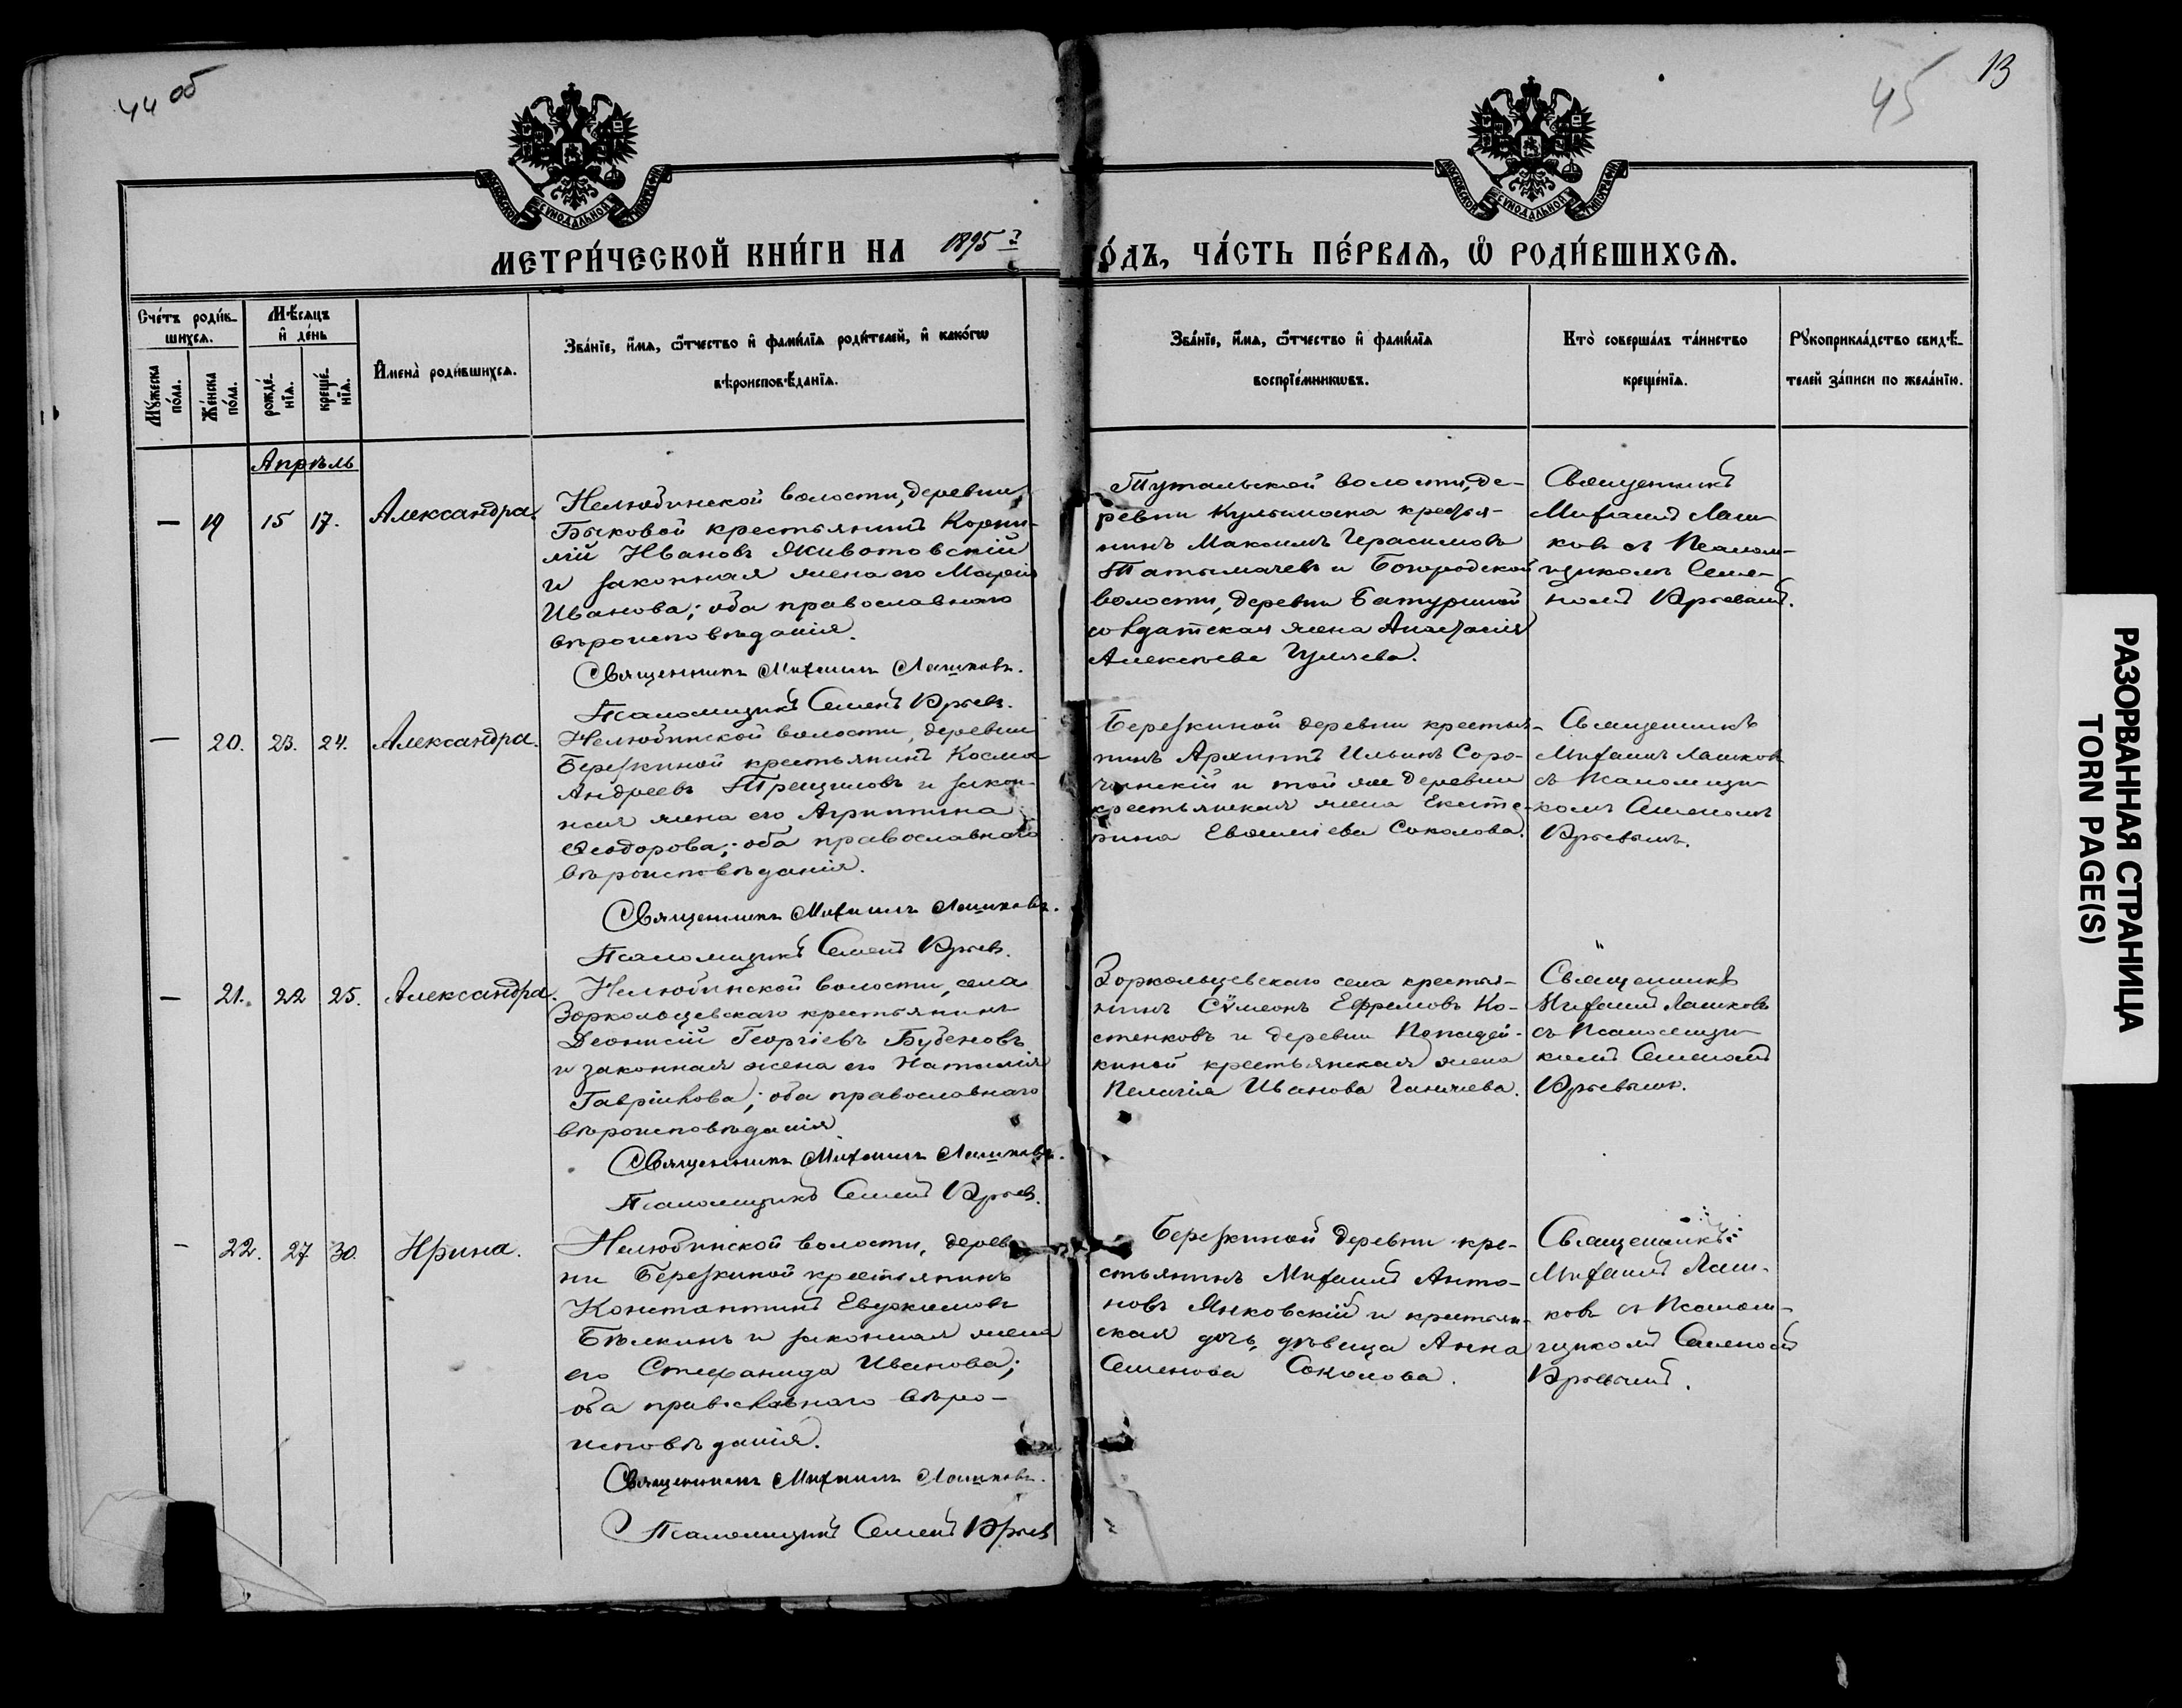 44 об
45
13
МОСКОВСКОЙ СѴНОДАЛЬНОЙ ТИПОГРАФІИ
МОСКОВСКОЙ СѴНОДАЛЬНОЙ ТИПОГРАФІИ
МЕТРИ́ЧЕСКОЙ КНИ́ГИ НА 1895 г
О́ДЪ, ЧА́СТЬ ПЕ́РВАѦ, Ѡ҆ РОДИ́ВШИХСѦ.
Сче́тъ роди́в-
шихсѧ.
Мѣ́сѧцъ
и҆ де́нь
Мꙋ́жеска
по́ла.
Же́нска
по́ла.
рожде́-
нїѧ.
креще́-
нїѧ.
И҆мена̀ роди́вшихсѧ.
Зва́нїе, и҆́мѧ, ѻ҆́тчество и҆ фами́лїѧ роди́телей, и҆ како́гѡ
вѣроисповѣ́данїѧ.
Зва́нїе, и҆́мѧ, ѻ҆́тчество и҆ фами́лїѧ
воспрїе́мникѡвъ.
Кто̀ соверша́лъ та́инство
креще́нїѧ.
Рꙋкоприкла́дство свидѣ́-
телей за́писи по жела́нїю.
Апрѣль
— 19 15 17. Александра.
Нелюбинской волости, деревни
Быковой крестьянинъ Корни-
лій Ивановъ Животовскій
и законная жена его Марія
Иванова; оба православнаго
вѣроисповѣданія.
Священникъ Михаилъ Лашковъ.
Псаломщикъ Семенъ
Тутальской волости, де-
ревни крестья-
нинъ Максимъ Герасимовъ
и Богородской
волости, деревни Батуриной
солдатская жена Анастасія
Алексѣева
Священникъ
Михаилъ Лаш-
ковъ съ Псалом-
щикомъ Семе-
номъ
— 20. 23. 24. Александра.
Нелюбинской волости, деревни
Березкиной крестьянинъ Косма
Андреевъ Трещиловъ и закон-
ная жена его Агриппина
Ѳеодорова; оба православнаго
вѣроисповѣданія.
Священникъ Михаилъ Лашковъ.
Псаломщикъ Семенъ
Березкиной деревни крестья-
нинъ Архиппъ Ильинъ Соро-
чинскій и той же деревни
крестьянская жена Екате-
рина Соколова.
Священникъ
Михаилъ Лашковъ
съ Псаломщи-
комъ Семеномъ
— 21. 22 25. Александра.
Нелюбинской волости, села
Зоркольцевскаго крестьянинъ
Деонисій Георгіевъ Буденовъ
и законная жена его Наталія
Гаврилова; оба православнаго
вѣроисповѣданія
Священникъ Михаилъ Лашковъ.
Псаломщикъ Семенъ
Зоркольцевскаго села крестья-
нинъ Сѵмеонъ Ефремовъ Ко-
стенковъ и деревни Попадей-
киной крестьянская жена
Пелагія Иванова
Священникъ
Михаилъ Лашковъ
съ Псаломщи-
комъ Семеномъ
— 22. 27 30. Ирина.
Нелюбинской волости, дерев-
ни Березкиной крестьянинъ
Константинъ Евдокимовъ
Бѣлкинъ и законная жена
его Стефанида Иванова;
оба православнаго вѣро-
исповѣданія.
Священникъ Михаилъ Лашковъ.
Псаломщикъ Семенъ
Березкиной деревни кре-
стьянинъ Михаилъ Анто-
новъ Янковскій и крестьян-
ская дочь дѣвица Анна
Семенова Соколова.
Священникъ
Михаилъ Лаш-
ковъ съ Псалом-
щикомъ Семеномъ
РАЗОРВАННАЯ СТРАНИЦА
TORN PAGE(S)